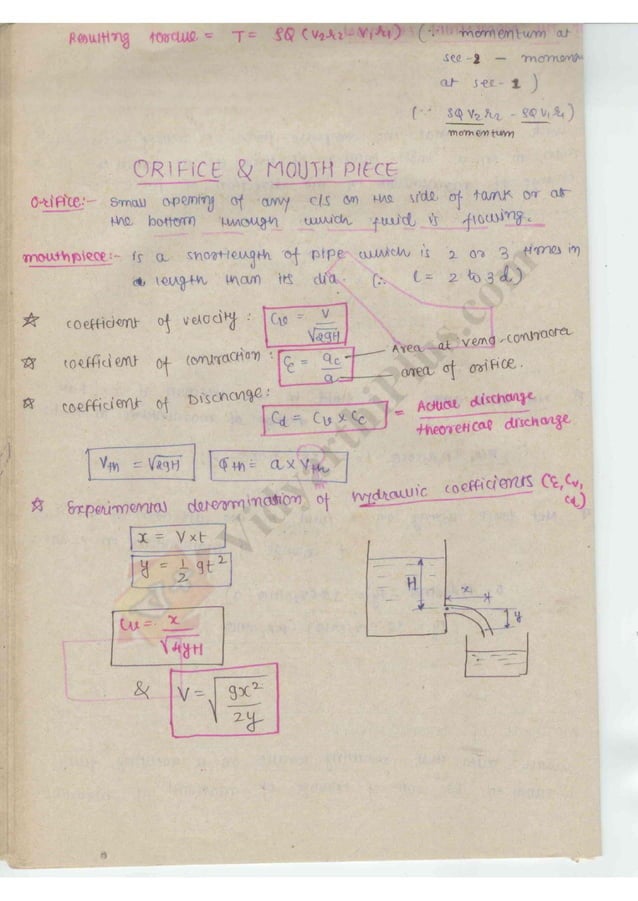 Resulting torque = T = ρQ (V₂r₂ - V₁r₁) (∵ momentum at
sec-2 - momentum
at sec-1)
(∵ ρQV₂r₂ - ρQV₁r₁)
momentum
ORIFICE & MOUTH PIECE
Orifice:- Small opening of any c/s on the side of tank or at
the bottom through which fluid is flowing.
mouthpiece:- is a short length of pipe which is 2 or 3 times in
length than its dia. (∵ l = 2 to 3 d)
☆ coefficient of velocity : Cv = V / √2gH
☆ coefficient of contraction : Cc = ac / a Area at vena-contracta
area of orifice.
☆ coefficient of Discharge:
Cd = Cv × Cc = Actual discharge / theoretical discharge
Vth = √2gH Qth = a × Vth
☆ Experimental determination of hydraulic coefficients (Cc, Cv,
Cd)
x = V×t
y = 1/2 gt²
H x y
Cv = x / √4yH
& V = √gx² / 2y
VidyarthiPlus.com